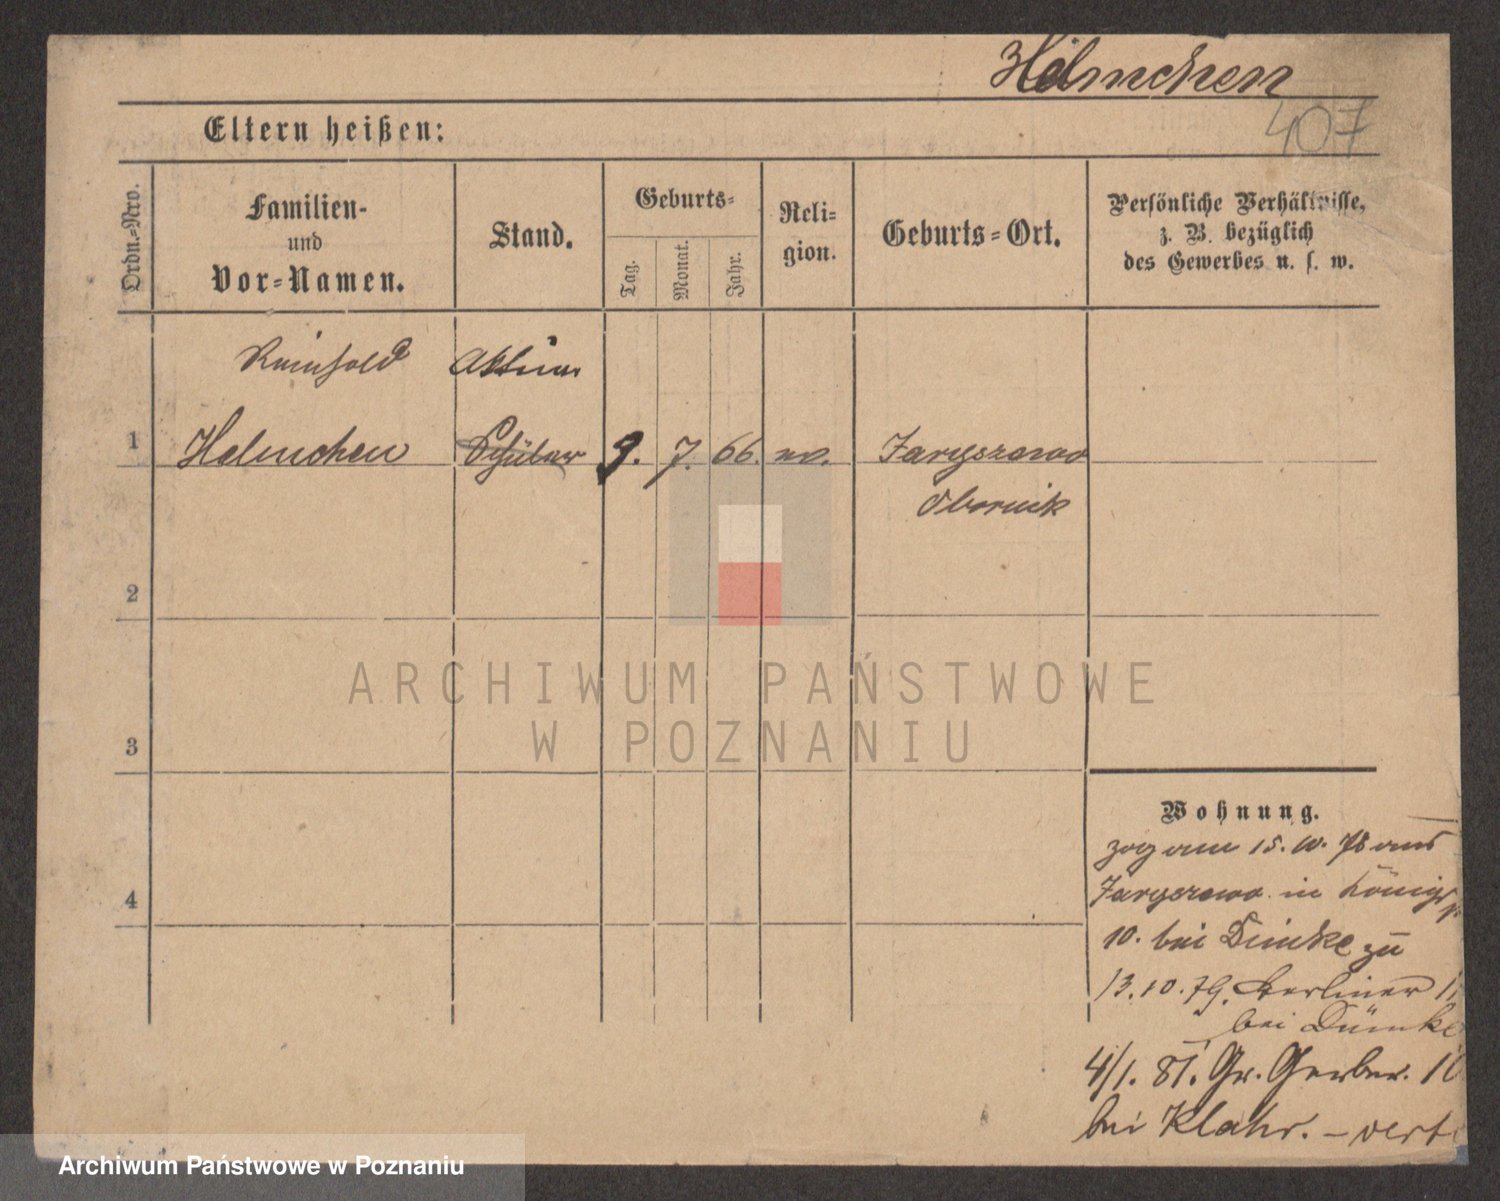 Helmchen
407
Eltern heißen:
Ordn.-Nro.
Familien-
und
Vor-Namen.
Stand.
Geburts-
Tag.
Monat.
Jahr.
Reli-
gion.
Geburts-Ort.
Persönliche Verhältnisse,
z. B. bezüglich
des Gewerbes u. s. w.
Reinhold
1 Helmchen Schüler 9. 7. 66. ev. Jaryszewo
Obornik
2
3
4
ARCHIWUM PAŃSTWOWE
W POZNANIU
Wohnung.
zog am 15. 10. 78 aus
Jaryszewo in Königs
10. bei Dümke zu
13.10.79. Berliner
bei Dümke
4/1. 81. Gr. Gerber. 1
bei Klahr. – verte
Archiwum Państwowe w Poznaniu